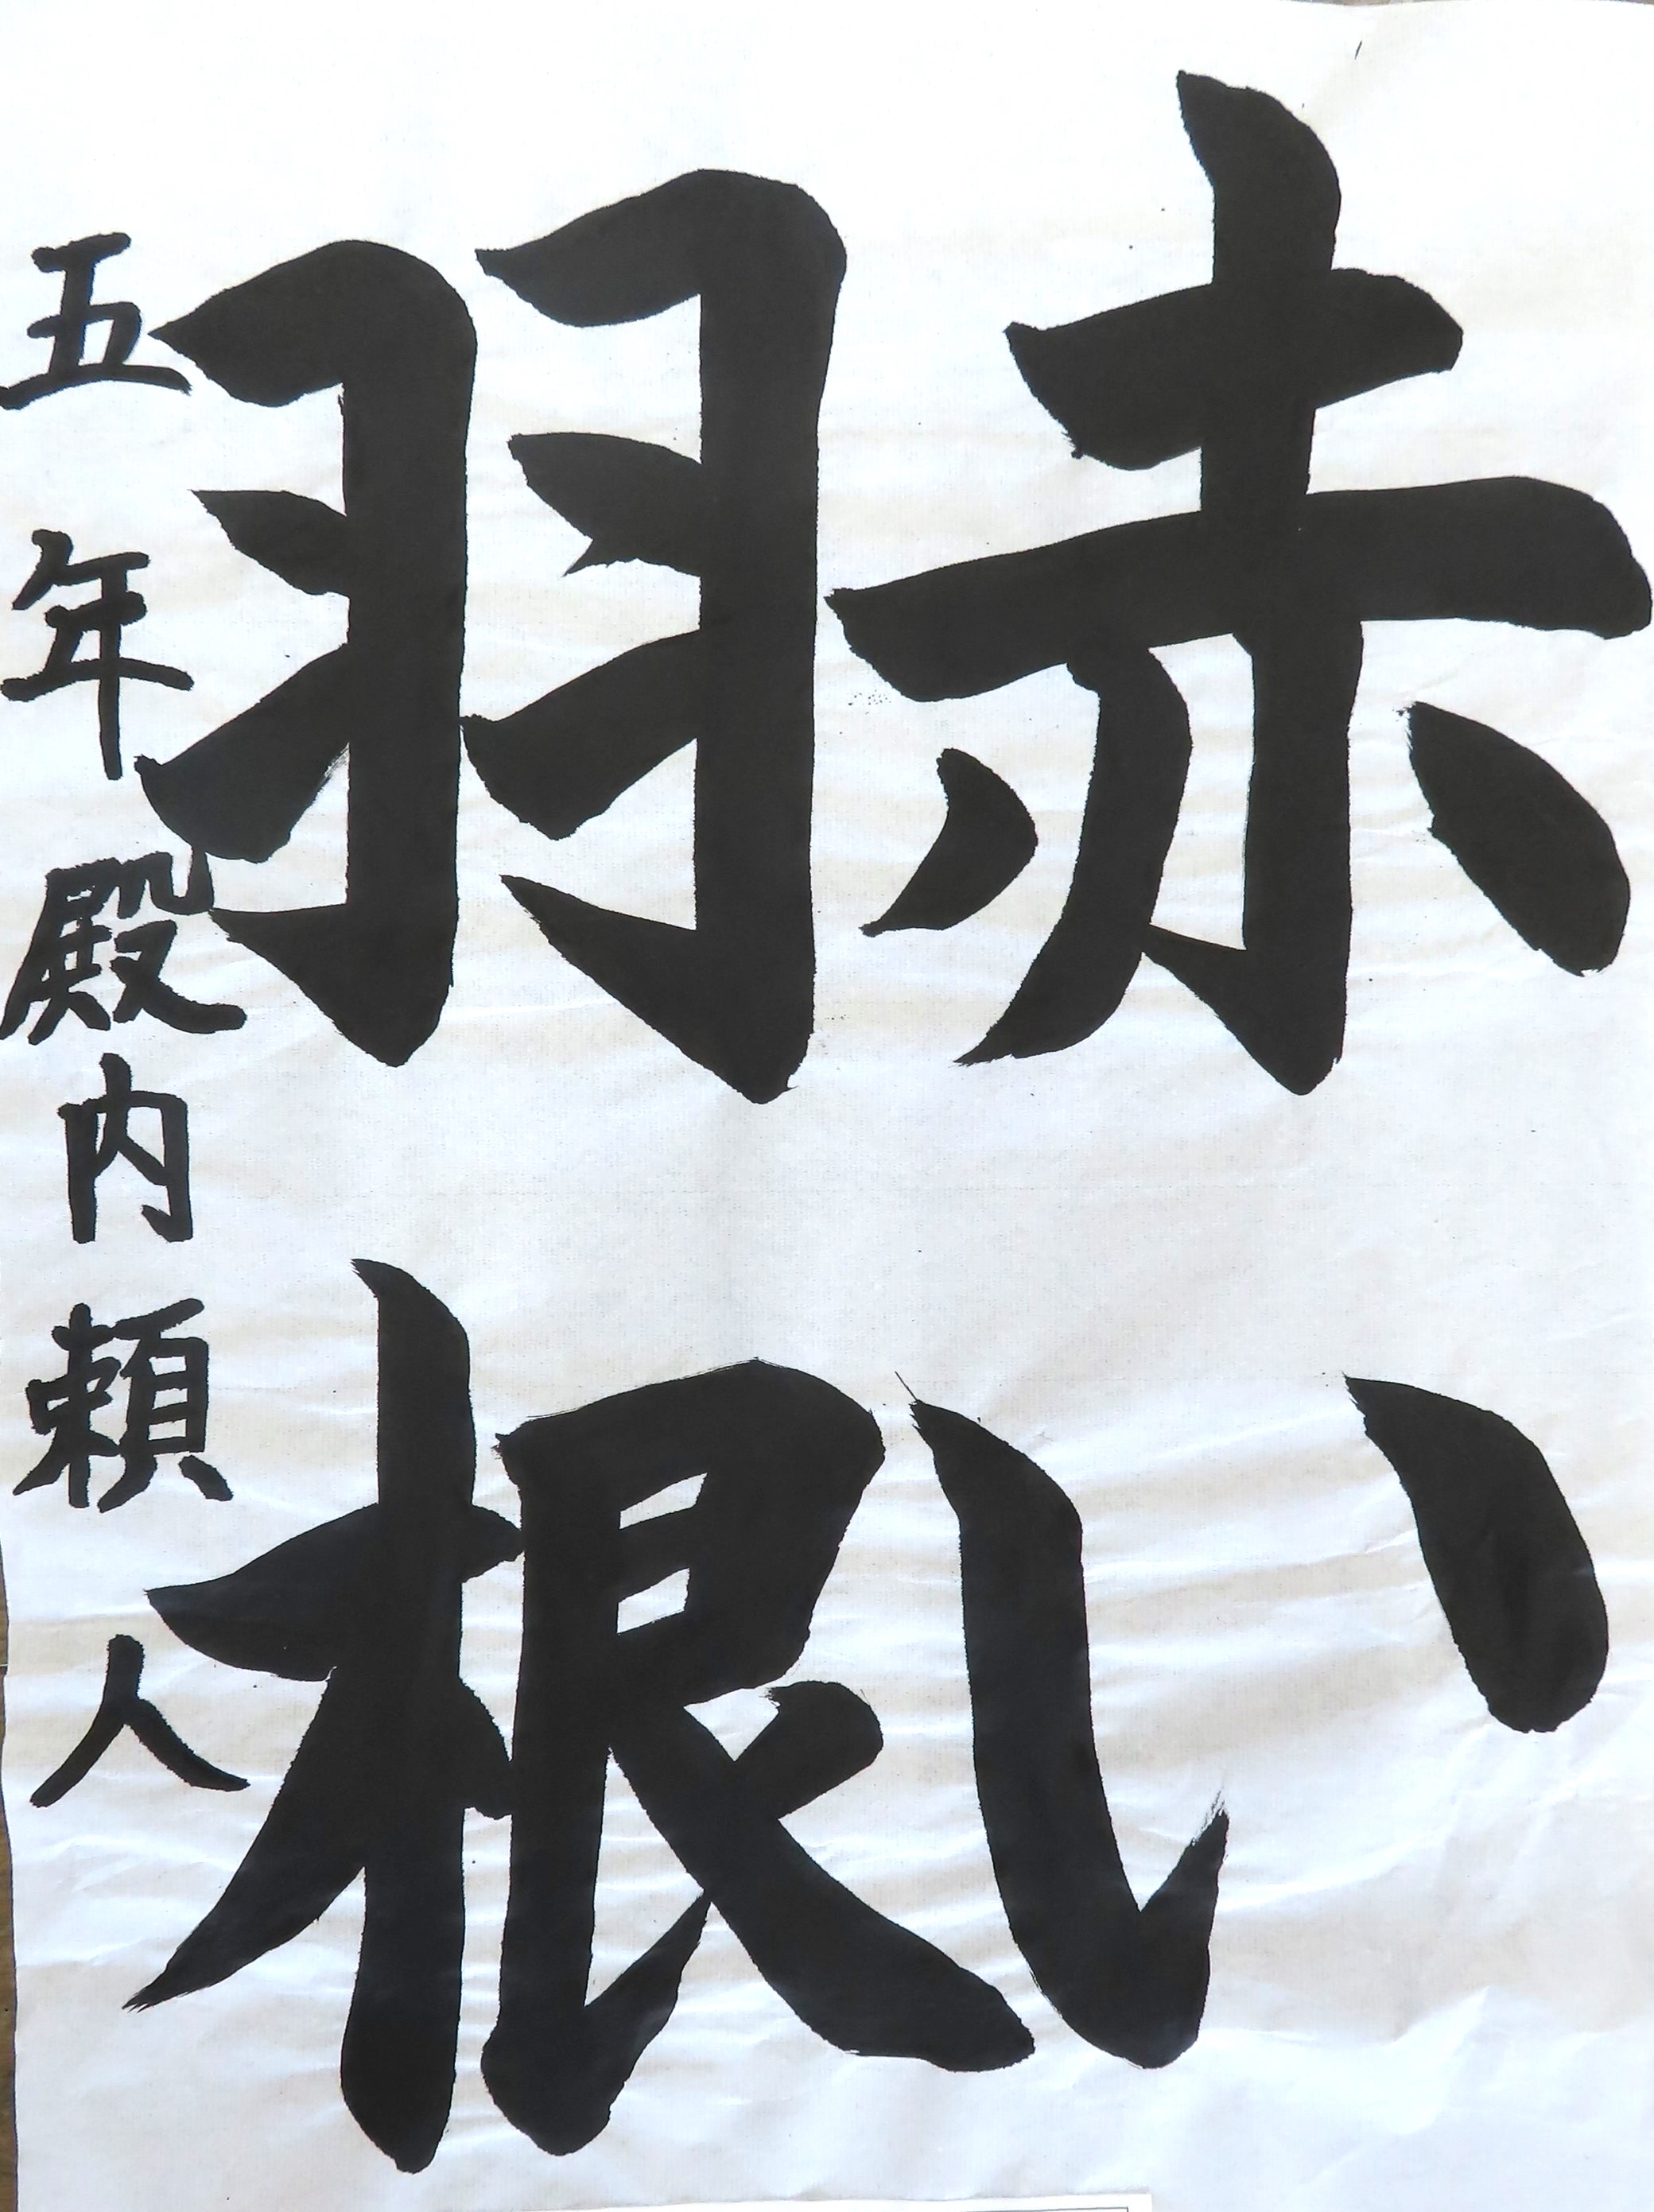 赤い
羽根
五年 殿内頼人